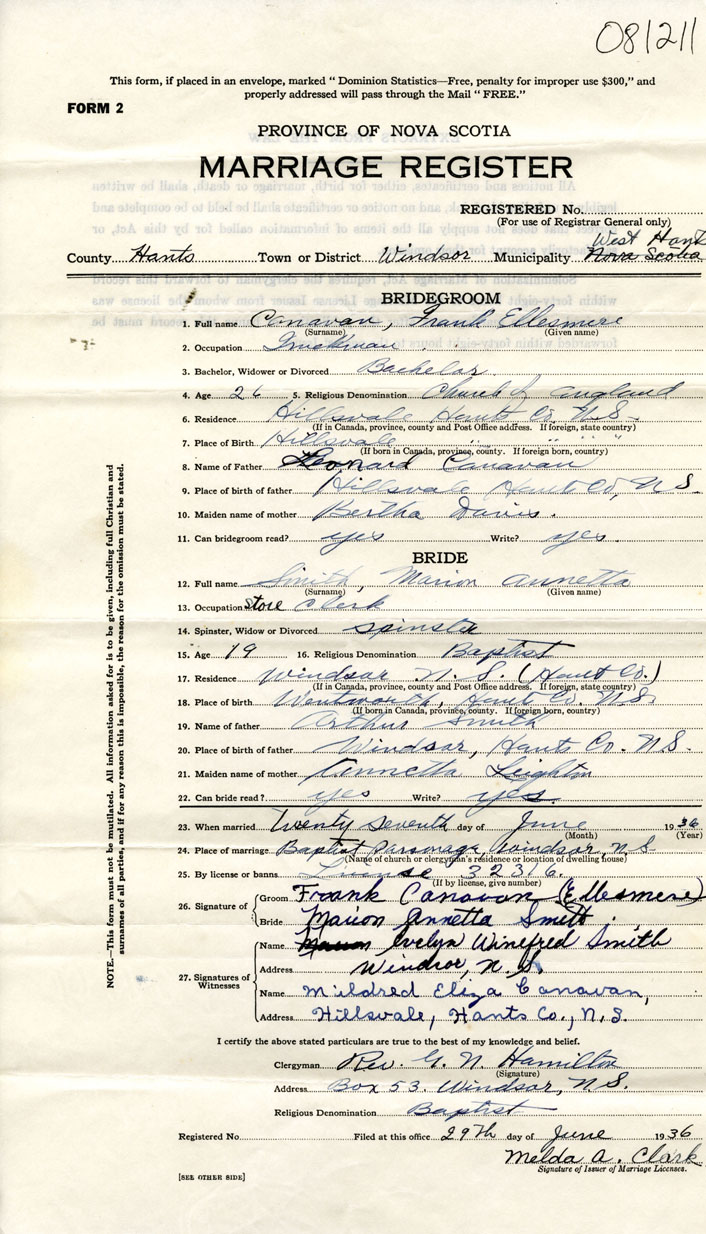 081211
This form, if placed in an envelope, marked “ Dominion Statistics—Free, penalty for improper use $300,” and
properly addressed will pass through the Mail “ FREE.”
FORM 2
PROVINCE OF NOVA SCOTIA
MARRIAGE REGISTER
REGISTERED No.
(For use of Registrar General only)
West Hants
County Hants Town or District Windsor Municipality Nova Scotia
BRIDEGROOM
1. Full name Canavan, Frank Ellesmere
(Surname) (Given name)
2. Occupation Truckman
3. Bachelor, Widower or Divorced Bachelor
4. Age 26 5. Religious Denomination Church of England
6. Residence Hillsvale Hants Co. N.S.
(If in Canada, province, county and Post Office address. If foreign, state country)
7. Place of Birth Hillsvale " " " "
(If born in Canada, province, county. If foreign born, country)
8. Name of Father Leonard Canavan
9. Place of birth of father Hillsvale Hants Co, N.S.
10. Maiden name of mother Bertha Davis.
11. Can bridegroom read? yes Write? yes.
BRIDE
12. Full name Smith, Marion Annetta
(Surname) (Given name)
13. Occupation Store Clerk
14. Spinster, Widow or Divorced Spinster
15. Age 19 16. Religious Denomination Baptist
17. Residence Windsor N.S. (Hants Co.)
(If in Canada, province, county and Post Office address. If foreign, state country)
18. Place of birth Wentworth, Hants Co. N.S.
(If born in Canada, province, county. If foreign born, country)
19. Name of father Arthur Smith
20. Place of birth of father Windsor, Hants Co. N.S.
21. Maiden name of mother Annetta Leighton
22. Can bride read? yes Write? yes.
23. When married Twenty Seventh day of June 1936
(Month) (Year)
24. Place of marriage Baptist Parsonage, Windsor, N.S
(Name of church or clergyman's residence or location of dwelling house)
25. By license or banns License 32316.
(If by license, give number)
26. Signature of Groom Frank Canavan (Ellesmere)
Bride Marion Annetta Smith.
27. Signatures of Witnesses Name Evelyn Winifred Smith
Address Windsor, N.S.
Name Mildred Eliza Canavan,
Address Hillsvale, Hants Co., N.S.
I certify the above stated particulars are true to the best of my knowledge and belief.
Clergyman Rev. G. N. Hamilton
(Signature)
Address Box 53. Windsor, N.S.
Religious Denomination Baptist
Registered No. Filed at this office 29th day of June 1936
Melda A. Clark
Signature of Issuer of Marriage Licenses.
[SEE OTHER SIDE]
NOTE.—This form must not be mutilated. All information asked for is to be given, including full Christian and
surnames of all parties, and if for any reason this is impossible, the reason for the omission must be stated.